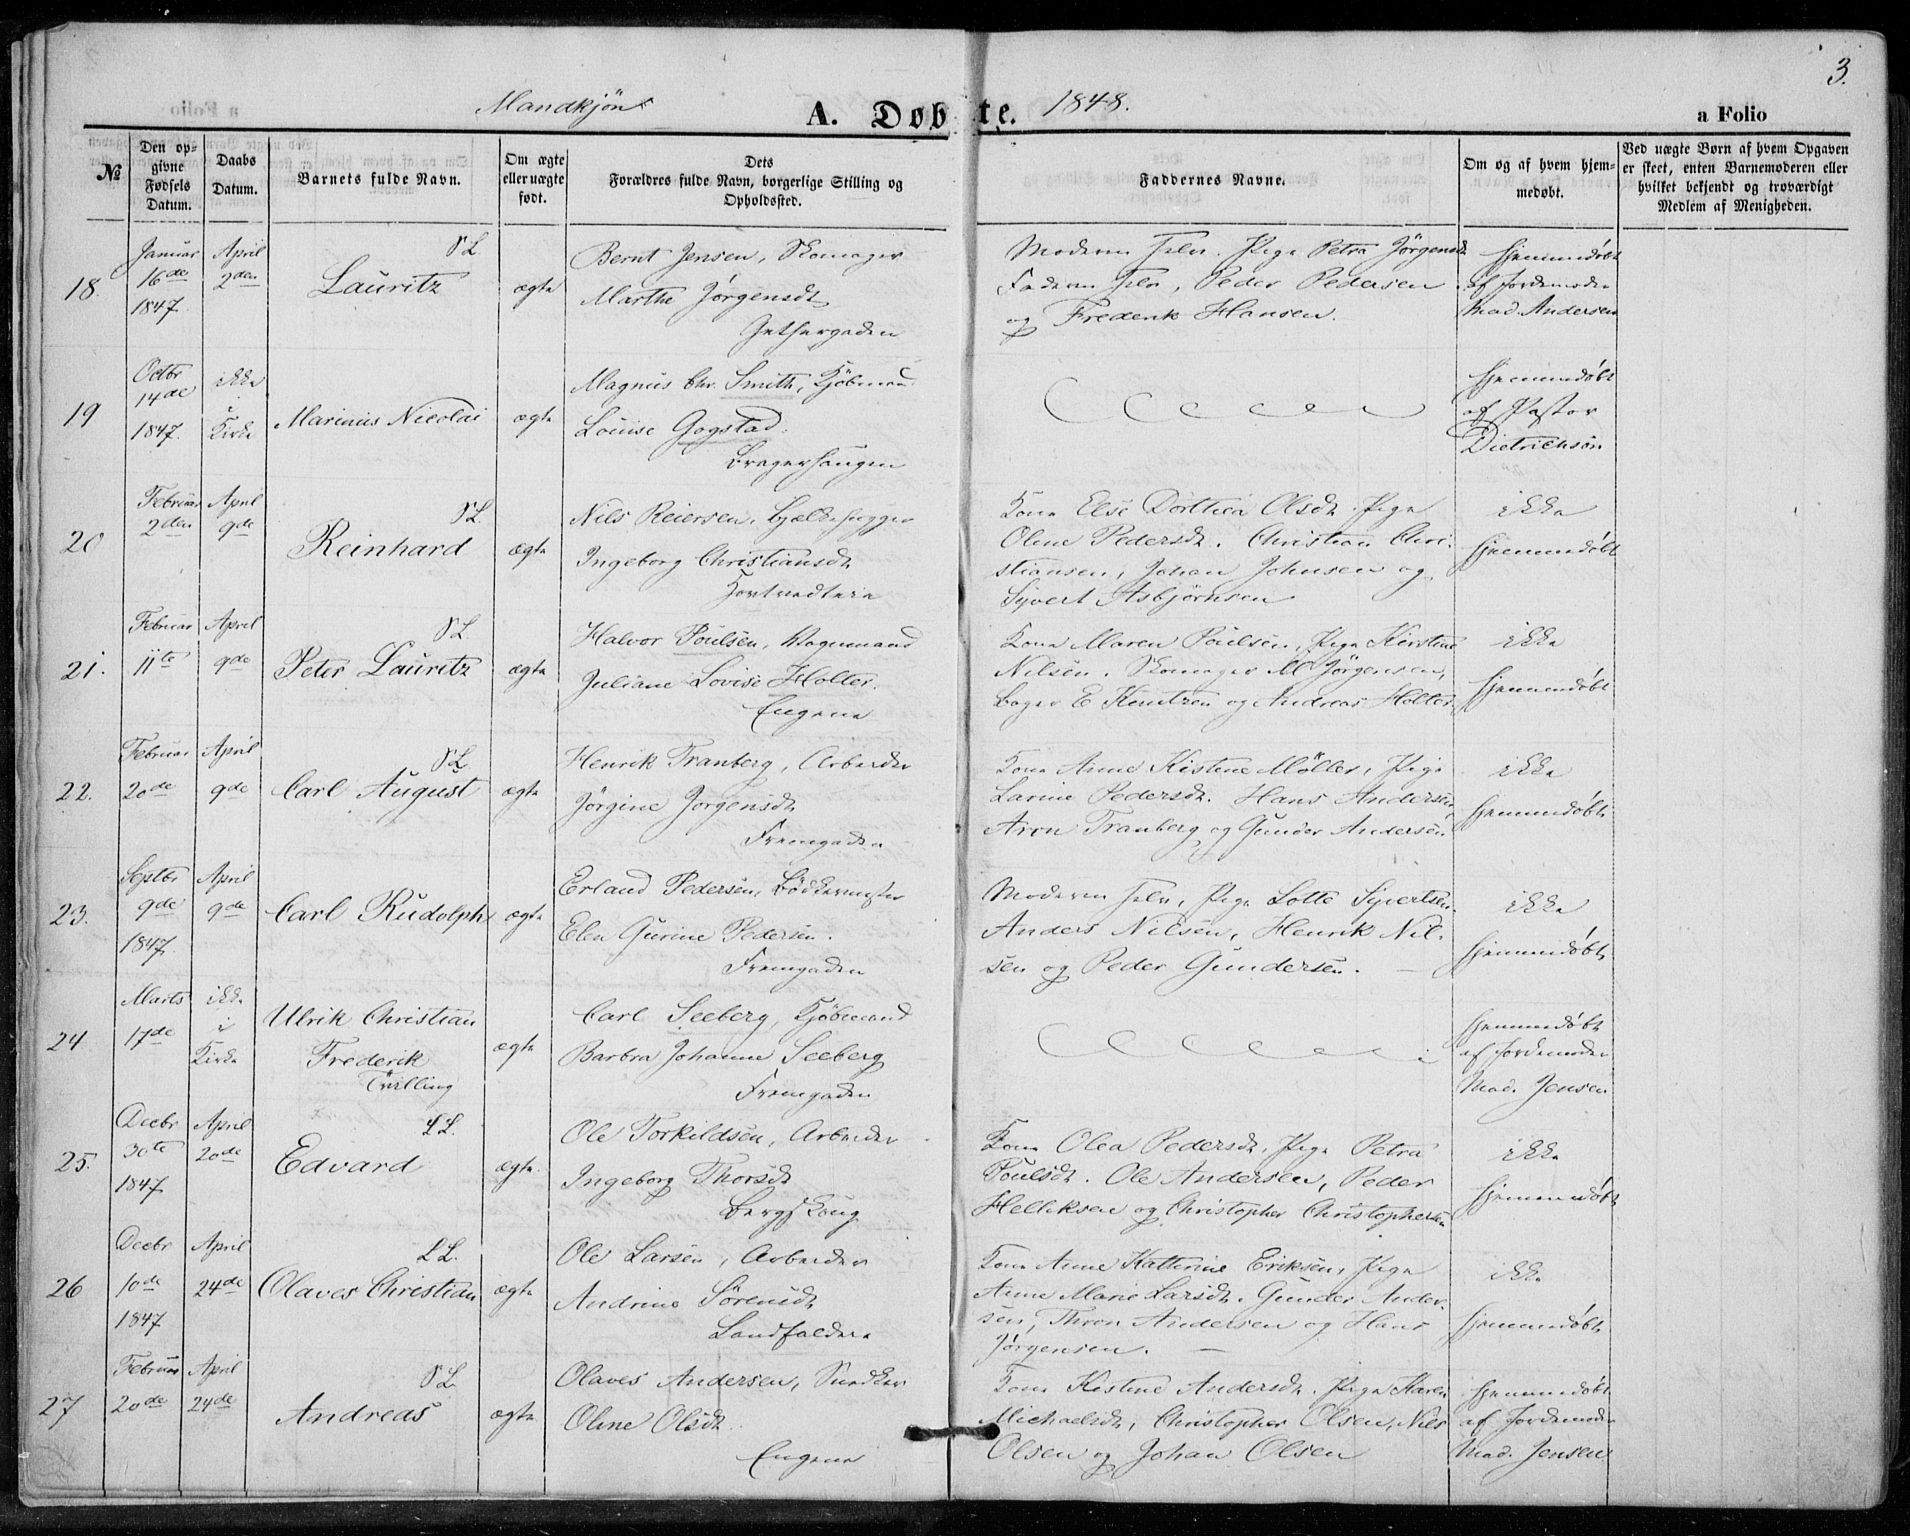 3.
Mandkjøn
A. Døbte.
1848.
a Folio
№
Den opgivne Fødsels Datum.
Daabs Datum.
Barnets fulde Navn.
Om ægte eller uægte født.
Dets Forældres fulde Navn, borgerlige Stilling og Opholdssted.
Faddernes Navne.
Om og af hvem hjemmedøbt.
Ved uægte Børn af hvem Opgaven er skeet, enten Barnemoderen eller hvilket bekjendt og troværdigt Medlem af Menigheden.
18.
Januar 16de 1847.
April 2den
S L
Lauritz
ægte
Bernt Jensen, Skomager
Marthe Jørgensdt
Moderen selv. Pige Petra Jørgensdt
Faderen selv, Peder Pedersen
og Frederik Hansen.
Hjemmedøbt
af Jordemoder
Mad. Andersen
19
Octbr 14de 1847.
ikke i Kirke
Marinus Nicolai
ægte
Magnus Chr. Smith, Kjøbmand
Louise Gogstad.
Hjemmedøbt
af Pastor
Dietrichson
20
Februar 2den
April 9de
S L.
Reinhard
ægte
Nils Reiersen, Bjelkehugger
Ingeborg Christiansdt
Kone Else Dorthea Olsdt. Pige
Oline Pedersdt. Christian Chri-
stiansen, Johan Johnsen og
Syvert Asbjørnsen
ikke
hjemmedøbt
21.
Februar 11te
April 9de
S L.
Peter Lauritz
ægte
Halvor Poulsen, Vognmand
Juliane Lovise Holter.
Engene
Kone Maren Poulsen, Pige Kirstine
Nilsen. Skomager M Jörgensen,
Bager E Knutzen og Andreas Holter
ikke
hjemmedøbt
22.
Februar 20de
April 9de
S L.
Carl August
ægte
Henrik Tranberg, Arbeider
Jörgine Jorgensdt
Fremgaden
Kone Anne Kistine Möller, Pige
Larine Pedersdt. Hans Andersen
Aron Tranberg og Gunder Andersen
ikke
hjemmedøbt
23.
Septbr 9de 1847.
April 9de
Carl Rudolph
ægte
Erland Pedersen, Bødkermester
Elen Gurine Pedersen.
Fremgaden
Moderen selv, Pige Lotte Syvertsen.
Anders Nilsen, Henrik Nil-
sen og Peder Gundersen.
ikke
hjemmedøbt
24
Marts 17de
ikke i Kirke
Ulrik Christian
Frederik
Tvilling
ægte
Carl Seeberg, Kjöbmand
Barbra Johanne Seeberg
Fremgaden
hjemmedøbt
af Jordemoder
Mad. Jensen
25.
Decbr 30te 1847
April 20de
L L.
Edvard
ægte
Ole Torkildsen, Arbeider
Ingeborg Thorsdt
Bergskoug
Kone Olea Pedersdt, Pige Petra
Poulsdt. Ole Andersen, Peder
Helliksen og Christopher Christophersen
ikke
hjemmedøbt
26
Decbr 10de 1847
April 24de
L L.
Olaves Christian
ægte
Ole Larsen, Arbeider
Andrine Sørensdt
Landfaldene
Kone Anne Kathrine Eriksen, Pige
Anne Marie Larsdt. Gunder Ander-
sen, Thron Andersen og Hans
Jørgensen.
ikke
hjemmedøbt
27
Februar 20de
April 24de
S L
Andreas
ægte
Olaves Andersen, Snedker
Oline Olsdt
Engene
Kone Kistine Andersdt. Pige Karen
Michaelsdt, Christopher Olsen, Nils
Olsen og Johan Olsen
hjemmedøbt
af Jordemoder
Mad. Jensen